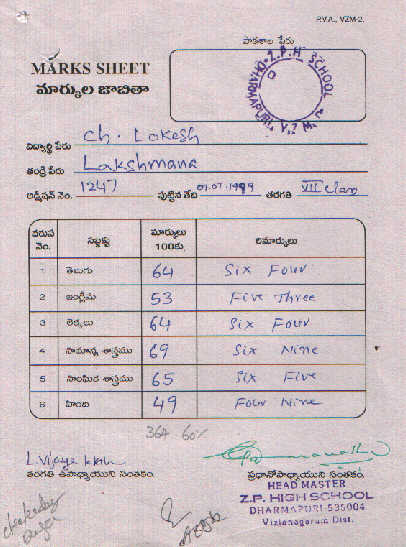 P.V.A., VZM-2.
పాఠశాల పేరు
MARKS SHEET
మార్కుల జాబితా
Z.P.H SCHOOL
V.Z.M.
విద్యార్థి పేరు Ch. Lokesh
తండ్రి పేరు Lakshmana
అడ్మిషన్ నెం. 1247 పుట్టిన తేది 01.07.1999 తరగతి VII Class
వరుస నెం. సబ్జక్టు మార్కులు 100కు. రిమార్కులు
1 తెలుగు 64 Six Four
2 ఇంగ్లీషు 53 Five Three
3 లెక్కలు 64 Six Four
4 సామాన్య శాస్త్రము 69 Six Nine
5 సాంఘిక శాస్త్రము 65 Six Five
6 హింది 49 Four Nine
364 60%
L. Vijaya
తరగతి ఉపాధ్యాయుని సంతకం
ప్రధానోపాధ్యాయుని సంతకం
HEAD MASTER
Z.P. HIGH SCHOOL
DHARMAPURI-535004
Vizianagaram Dist.